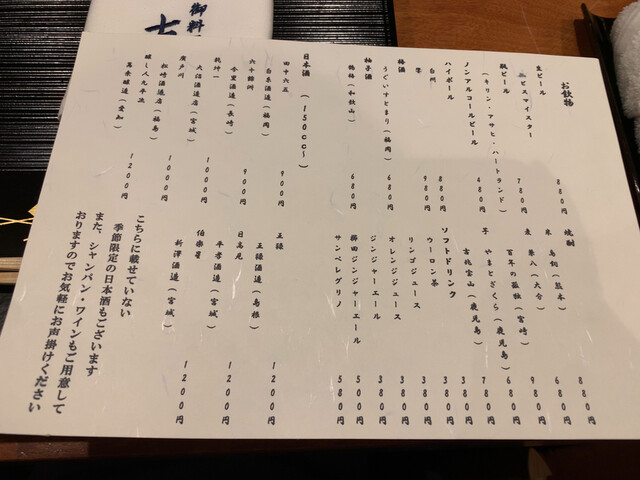 御料
お飲物
生ビール 880円
ビスマイスター 780円
瓶ビール
(キリン・アサヒ・ハートランド) 480円
ノンアルコールビール
ハイボール
白州 880円
響 980円
梅酒
うぐいすとまり(福岡) 680円
柚子酒
鶴梅(和歌山) 680円
日本酒 (150cc〜)
田中六五
白糸酒造(福岡) 900円
六十餘洲
今里酒造(長崎) 900円
乾坤一
大沼酒造店(宮城) 1000円
廣戸川
松崎酒造店(福島) 1000円
醸し人九平次
萬乗醸造(愛知) 1200円
焼酎
米 鳥飼(熊本) 880円
麦 兼八(大分) 980円
百年の孤独(宮崎) 680円
芋 やまとざくら(鹿児島) 780円
吉兆宝山(鹿児島) 380円
ソフトドリンク
ウーロン茶 380円
リンゴジュース 380円
オレンジジュース 380円
ジンジャーエール 380円
櫛田ジンジャーエール 500円
サンペレグリノ 580円
王祿
王祿酒造(島根) 1200円
日高見
平孝酒造(宮城) 1200円
伯楽星
新澤酒造(宮城) 1200円
こちらに載せていない
季節限定の日本酒もございます
また、シャンパン・ワインもご用意して
おりますのでお気軽にお声掛けください